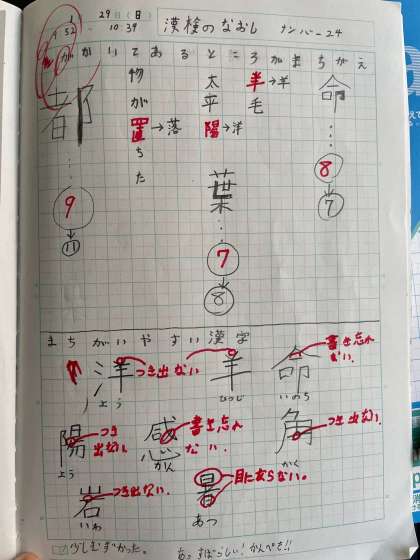 29日(日)
10:39
漢検のなおし ナンバー24
かいてあるところがまちがえ
命
⑧
↓
⑦
羊→羊毛
太平陽→洋
葉
⑦
↓
⑧
物が置→落ちた
都
⑨
↓
⑪
まちがいやすい漢字
命 いのち 書き忘れない。
羊 ひつじ つき出ない
洋 よう
角 かく つき出ない。
感 かん 書き忘れない。
陽 よう つき出ない
暑 あつ 目にならない。
岩 いわ つき出ない。
少しむずかった。
すばらしい!かんぺき!!